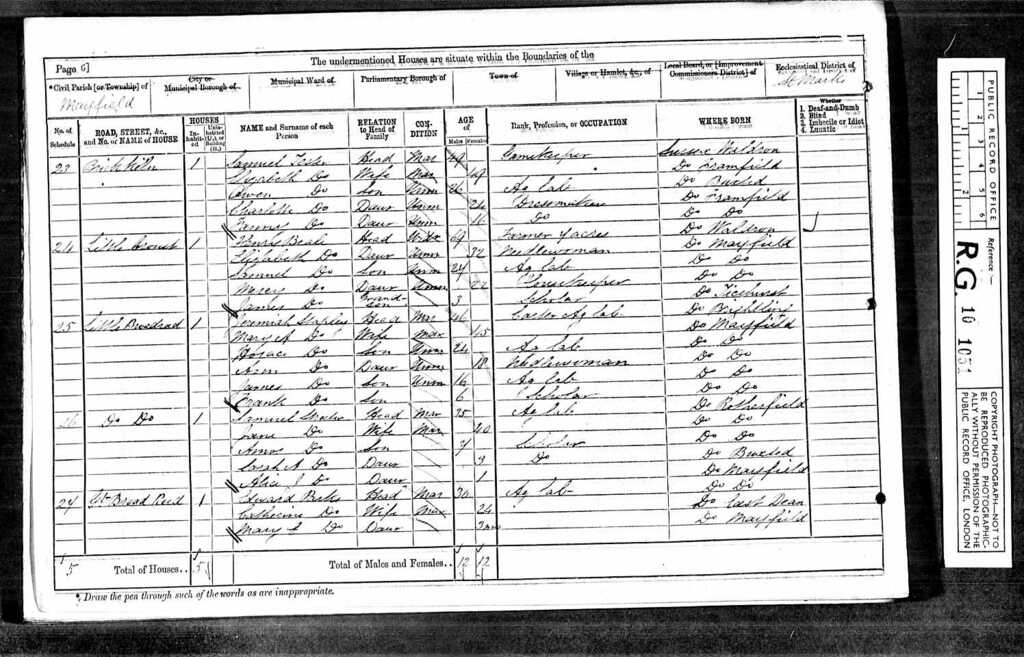 The undermentioned Houses are situate within the Boundaries of the
Page 6]
*Civil Parish [or Township] of
Mayfield
City or Municipal Borough of
Municipal Ward of
Parliamentary Borough of
Town of
Village or Hamlet, &c., of
Local Board, or [Improvement Commissioners District] of
Ecclesiastical District of
St Marks
No. of Schedule
ROAD, STREET, &c., and No. or NAME of HOUSE
HOUSES
Inhabited
Uninhabited (U.), or Building (B.)
NAME and Surname of each Person
RELATION to Head of Family
CONDITION
AGE of
Males
Females
Rank, Profession, or OCCUPATION
WHERE BORN
Whether
1. Deaf-and-Dumb
2. Blind
3. Imbecile or Idiot
4. Lunatic
23 Brick Kiln 1 Samuel Head Mar 49 Gamekeeper Sussex Waldron
Elizabeth Do Wife Mar 49 Do Framfield
Owen Do Son Unm 26 Ag lab Do Buxted
Charlotte Do Daur Unm 24 Dressmaker Do Framfield
Do Daur Unm 16 Do Do Do
24 Little 1 Beale Head 69 Farmer 7 acres Do Waldron
Elizabeth Do Daur Unm 32 Needlewoman Do Mayfield
Samuel Do Son Unm 27 Ag lab Do Do
Mercy Do Daur Unm 22 Housekeeper Do Do
James Do Grandson 3 Scholar Do Ticehurst
25 Little Broadreed 1 Jeremiah Staples Head Mar 46 Ag lab Do Brightling
Mary A Do Wife Mar 45 Do Mayfield
Horace Do Son Unm 24 Ag lab Do Do
Ann Do Daur Unm 18 Needlewoman Do Do
James Do Son Unm 16 Ag lab Do Do
Frank Do Son 6 Scholar Do Do
26 Do Do 1 Samuel Head Mar 35 Ag lab Do Rotherfield
Jane Do Wife Mar 40 Do Do
Amos Do Son 7 Scholar Do Do
Sarah A Do Daur 3 Do Do Buxted
Alice J Do Daur 1 Do Mayfield
27 Gt Broad Reed 1 Edward Head Mar 30 Ag lab Do Do
Catherine Do Wife Mar 24 Do East Dean
Mary E Do Daur 3 mo Do Mayfield
5 Total of Houses.. 5 Total of Males and Females.. 12 12
* Draw the pen through such of the words as are inappropriate.
PUBLIC RECORD OFFICE
1 2 3 4 5 6
Reference :-
R.G. 10 1051
COPYRIGHT PHOTOGRAPH—NOT TO BE REPRODUCED PHOTOGRAPHICALLY WITHOUT PERMISSION OF THE PUBLIC RECORD OFFICE, LONDON